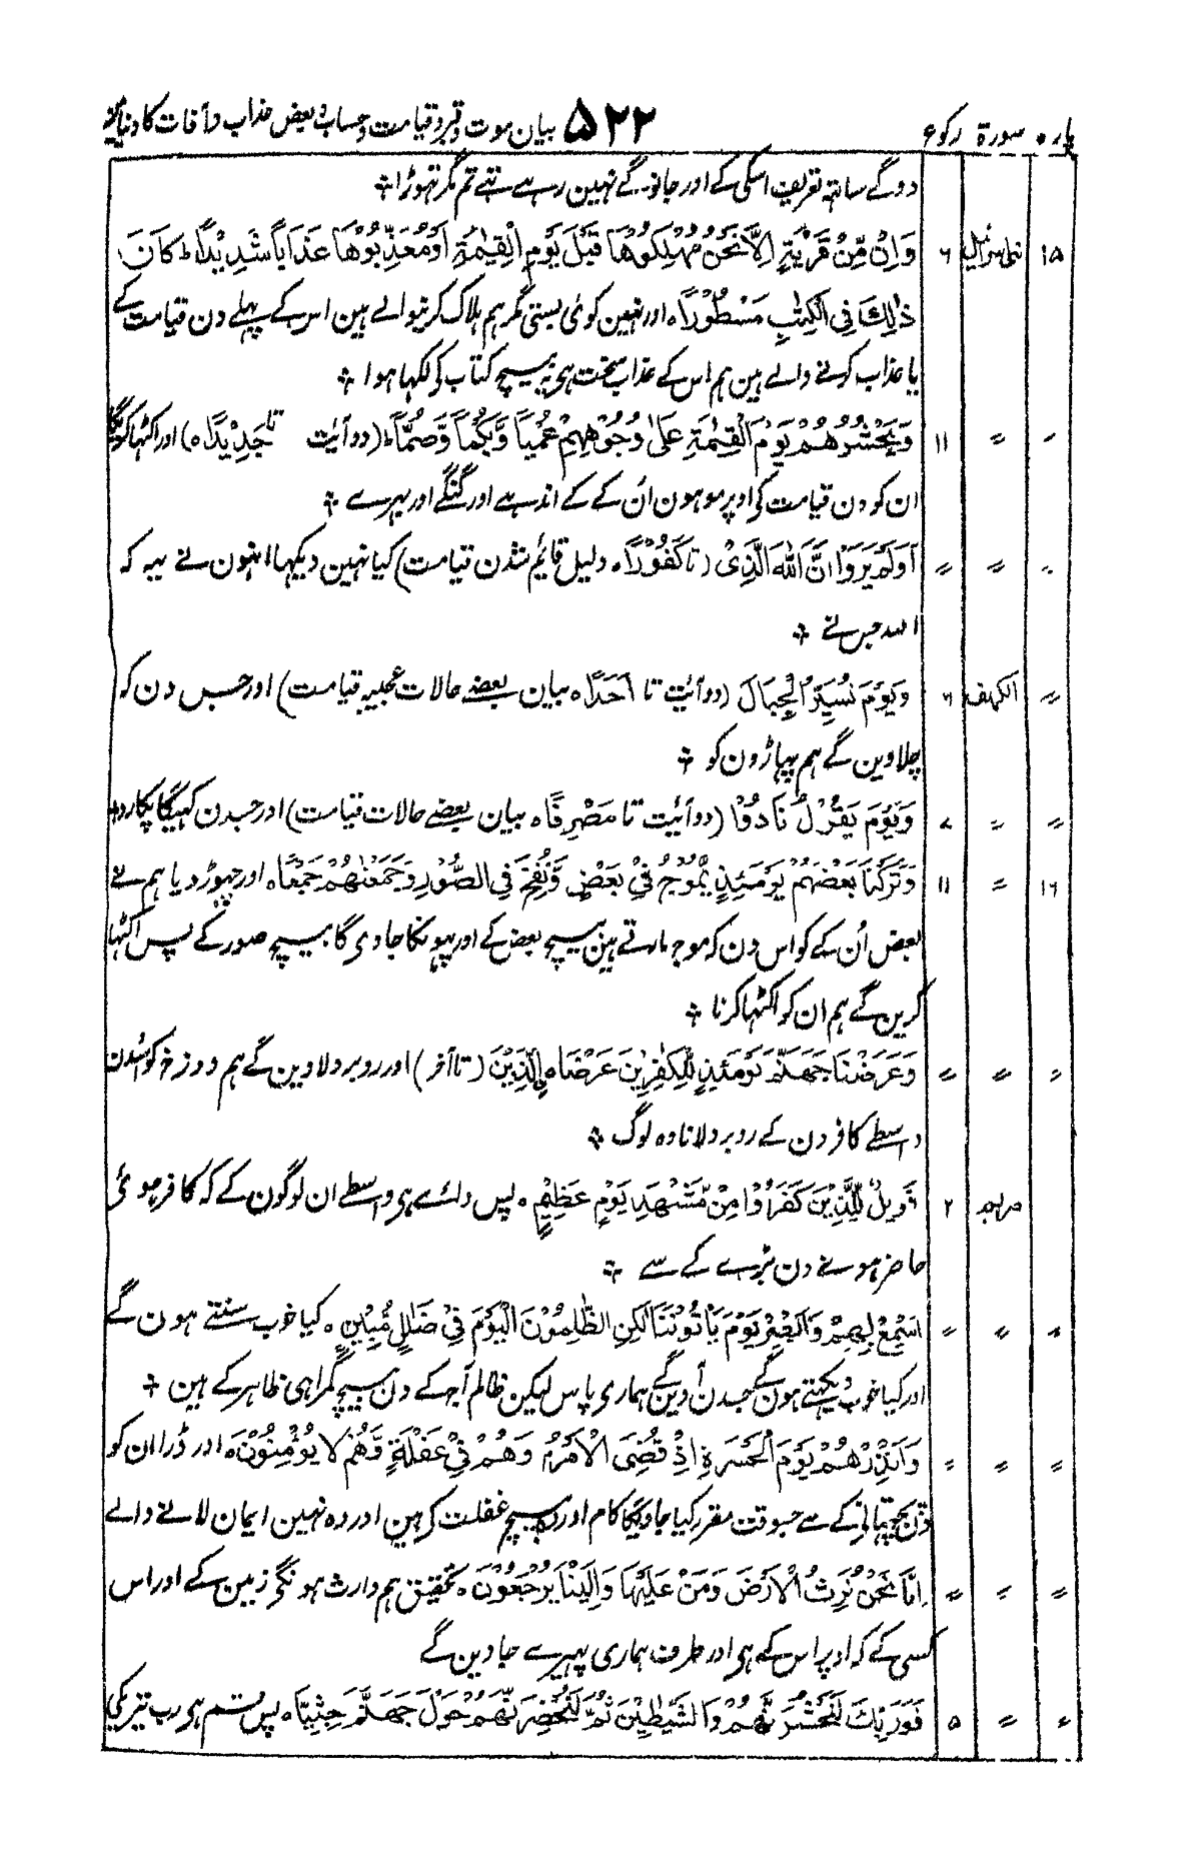 پارہ سورۃ رکوع ۵۲۲ بیان موت و قبر و قیامت و حساب و بعض عذاب و آفات کا دنیا میں
دوگے ساتھ تعریف اسکی کے اور جانوگے نہین رہے تھے تم مگر تھوڑا ؞
۱۵ بنی اسرائیل ۶ وَاِنْ مِّنْ قَرْیَةٍ اِلَّا نَحْنُ مُهْلِکُوْهَا قَبْلَ یَوْمِ الْقِیٰمَةِ اَوْ مُعَذِّبُوْهَا عَذَابًا شَدِیْدًا ؕ کَانَ
ذٰلِکَ فِی الْکِتٰبِ مَسْطُوْرًا ہ اور نہین کوئی بستی مگر ہم ہلاک کرنیوالے ہین اس کے پہلے دن قیامت کے
یا عذاب کرنے والے ہین ہم اس کے عذاب سخت ہی یہ بیچ کتاب کی لکھا ہوا ؞
〃 〃 ۱۱ وَنَحْشُرُهُمْ یَوْمَ الْقِیٰمَةِ عَلٰی وُجُوْهِهِمْ عُمْیًا وَّبُکْمًا وَّصُمًّا ؕ (دو آیت تا جَدِیْدًا ہ) اور اکٹھا کرینگے
ان کو دن قیامت کی اوپر موہون اُن کے کے اندہے اور گنگے اور بہرے ؞
〃 〃 〃 اَوَلَمْ یَرَوْا اَنَّ اللّٰهَ الَّذِیْ (تا کَفُوْرًا ہ دلیل قایم شدن قیامت) کیا نہین دیکھا انہون نے یہ کہ
اللہ جس نے ؞
〃 الکہف ۶ وَیَوْمَ نُسَیِّرُ الْجِبَالَ (دو آیت تا اَحَدًا ہ بیان بعضے حالات عجیبہ قیامت) اور جس دن کہ
چلاوین گے ہم پہاڑون کو ؞
〃 〃 ۷ وَیَوْمَ یَقُوْلُ نَادُوْا (دو آیت تا مَصْرِفًا ہ بیان بعضے حالات قیامت) اور جسدن کہیگا پکارو ؞
۱۶ 〃 ۱۱ وَتَرَکْنَا بَعْضَهُمْ یَوْمَئِذٍ یَّمُوْجُ فِیْ بَعْضٍ وَّنُفِخَ فِی الصُّوْرِ فَجَمَعْنٰهُمْ جَمْعًا ہ اور چھوڑ دیا ہم نے
بعض اُن کے کو اس دن کہ موج مارتے ہین بیچ بعض کے اور پھونکا جاوی گا بیچ صور کے پس اکٹھا
کرین گے ہم ان کو اکٹھا کرنا ؞
〃 〃 〃 وَعَرَضْنَا جَهَنَّمَ یَوْمَئِذٍ لِّلْکٰفِرِیْنَ عَرْضًا ہ الَّذِیْنَ (تا آخر) اور روبرو لاوین گے ہم دوزخ کو اُسدن
واسطے کافرون کے روبرو لانا وہ لوگ ؞
مریم ۲ فَوَیْلٌ لِّلَّذِیْنَ کَفَرُوْا مِنْ مَّشْهَدِ یَوْمٍ عَظِیْمٍ ہ پس وائے ہی واسطے ان لوگون کے کہ کافر ہوئی
حاضر ہونے دن بڑے کے سے ؞
〃 〃 〃 اَسْمِعْ بِهِمْ وَاَبْصِرْ یَوْمَ یَاْتُوْنَنَا لٰکِنِ الظّٰلِمُوْنَ الْیَوْمَ فِیْ ضَلٰلٍ مُّبِیْنٍ ہ کیا خوب سنتے ہون گے
اور کیا خوب دیکھتے ہون گے جسدن آوین گے ہماری پاس لیکن ظالم آج کے دن بیچ گمراہی ظاہر کے ہین ؞
〃 〃 〃 وَاَنْذِرْهُمْ یَوْمَ الْحَسْرَةِ اِذْ قُضِیَ الْاَمْرُ وَهُمْ فِیْ غَفْلَةٍ وَّهُمْ لَا یُؤْمِنُوْنَ ہ اور ڈرا ان کو
دن پچھتانی کے سے جسوقت مقرر کیا جاویگا کام اور وہ بیچ غفلت کے ہین اور وہ نہین ایمان لانے والے
〃 〃 〃 اِنَّا نَحْنُ نَرِثُ الْاَرْضَ وَمَنْ عَلَیْهَا وَاِلَیْنَا یُرْجَعُوْنَ ہ تحقیق ہم وارث ہونگی زمین کے اور اس
کسی کے کہ اوپر اس کے ہی اور طرف ہماری پہیرے جاوین گے
〃 〃 ۵ فَوَرَبِّکَ لَنَحْشُرَنَّهُمْ وَالشَّیٰطِیْنَ ثُمَّ لَنُحْضِرَنَّهُمْ حَوْلَ جَهَنَّمَ جِثِیًّا ہ پس قسم ہی رب تیری کی